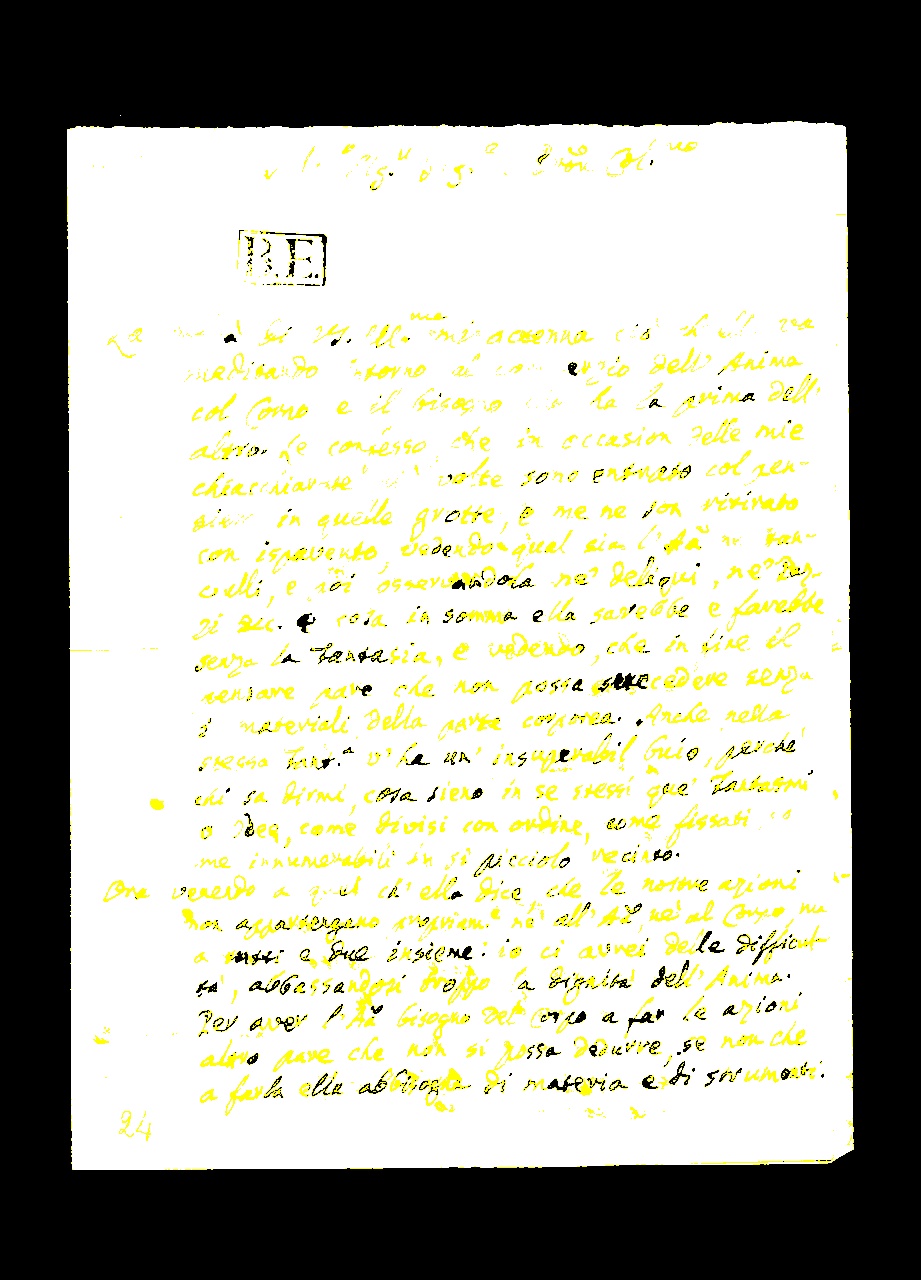 B.E.
mi accenna ciò
meditando intorno al commerzio dell' Anima
col Corpo e il bisogno che ha la prima dell'
altro. Le confesso, che in occasion delle mie
volte sono entrato col pen-
siero in quelle grotte, e me ne son ritirato
con ispavento, vedendo qual sia l'Aã ne' fan-
ciulli, e poi osservandola ne' deliqui, ne'
zi &c. e cosa in somma ella sarebbe e farebbe
senza la Fantasia, e vedendo, che in fine il
pensare pare che non possa succedere senza
i materiali della parte corporea. Anche nella
stessa Fant.a v'ha un' insuperabil buio, perché
chi sa dirmi, cosa sieno in se stessi que' Fantasmi
o Idee, come divisi con ordine, come fissati, co
me innumerabili in sì picciolo recinto.
Ora venendo a quel ch' ella dice, che le nostre azioni
non appartengano propriam.e né all'Aã, né al Corpo, ma
a tutti e due insieme: io ci avrei delle difficul-
tà, abbassandosi troppo la dignità dell' Anima.
Per aver l'Aã bisogno del Corpo a far le azioni
altro pare che non si possa dedurre, se non che
a farla ella abbisogna di materia e di strumenti.
24